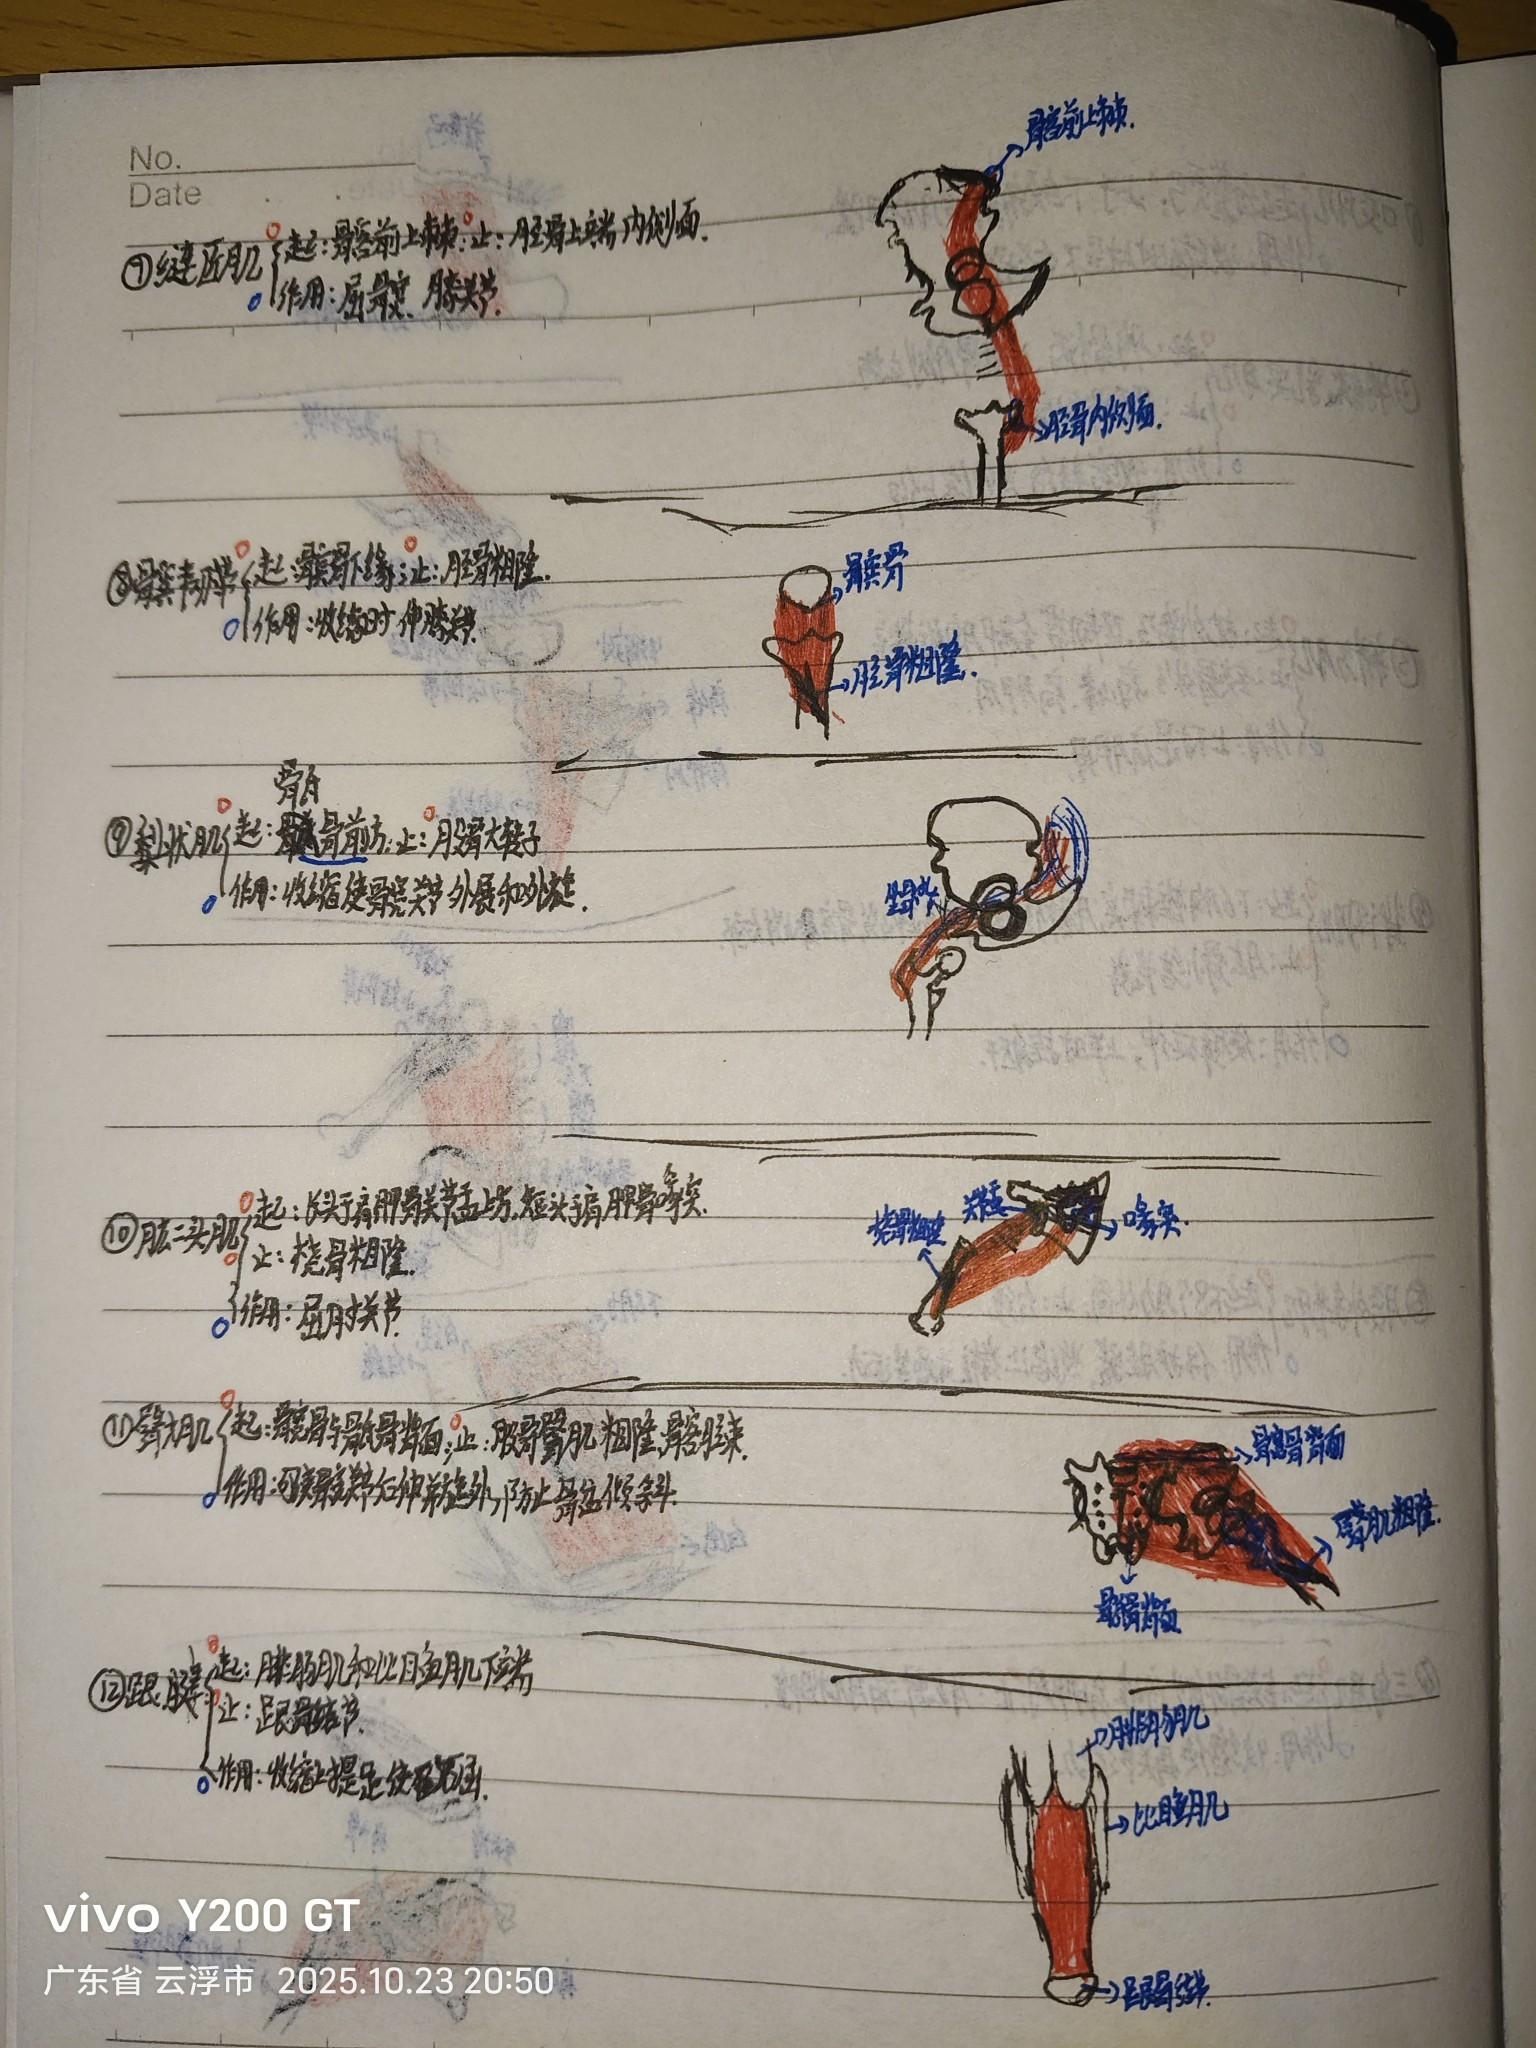 No.
Date
髂前上棘.
⑦缝匠肌 起:髂前上棘;止:胫骨上端内侧面.
作用:屈髋.膝关节.
胫骨内侧面.
⑧髌韧带 起:髌骨下缘;止:胫骨粗隆.
作用:收缩时伸膝关节.
髌骨
胫骨粗隆.
⑨梨状肌 起:骶骨前方;止:股骨大转子
作用:收缩使髋关节外展和外旋.
⑩肱二头肌 起:长头于肩胛骨关节盂上方,短头于肩胛骨喙突.
止:桡骨粗隆.
作用:屈肘关节.
桡骨粗隆
关节盂
喙突.
⑪臀大肌 起:髋骨与骶骨背面;止:股骨臀肌粗隆,髂胫束.
作用:可使髋关节后伸并旋外,防止骨盆倾斜.
髋骨背面
臀肌粗隆.
骶骨背面
⑫跟腱 起:腓肠肌和比目鱼肌下端
止:跟骨结节.
作用:收缩上提足使
腓肠肌
比目鱼肌
跟骨结节.
vivo Y200 GT
广东省 云浮市 2025.10.23 20:50